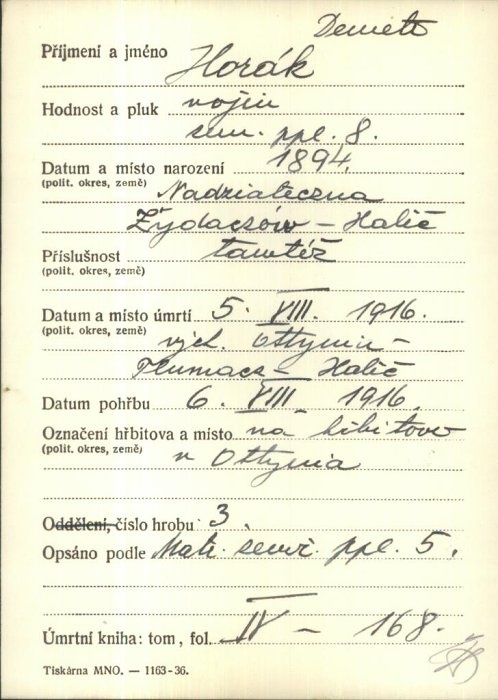 Demetr
Příjmení a jméno Horák
Hodnost a pluk vojín
zem. ppl. 8.
Datum a místo narození 1894.
(polit. okres, země) Nadziateczna
Žydaczów – Halič
Příslušnost tamtéž
(polit. okres, země)
Datum a místo úmrtí 5. VIII. 1916.
(polit. okres, země) vých. Ottynia –
Tlumacz – Halič
Datum pohřbu 6. VIII. 1916.
Označení hřbitova a místo na
(polit. okres, země) Ottynia
Oddělení, číslo hrobu 3.
Opsáno podle Matr. ppl. 5.
Úmrtní kniha: tom, fol. IV – 168.
Tiskárna MNO. — 1163-36.